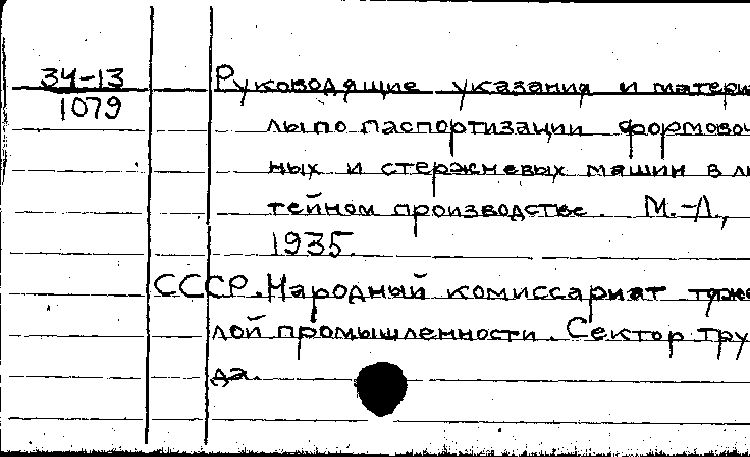 34-13
1079
Руководящие указания и матери
лы по паспортизации формовоч
ных и стержневых машин в ли
тейном производстве. М.-Л.,
1935.
СССР. Народный комиссариат тяже
лой промышленности. Сектор тру
да.